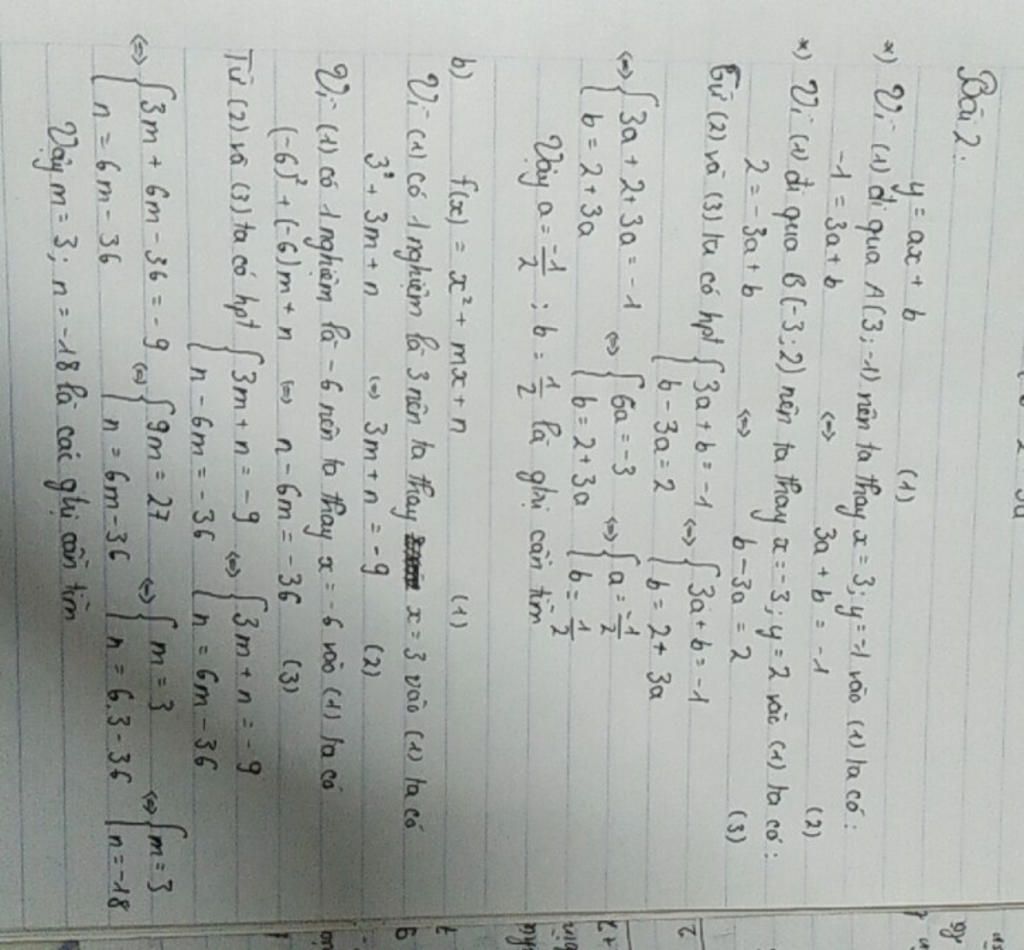 Bài 2.
y = ax + b (1)
*) Vì (1) đi qua A(3; -1) nên ta thay x = 3; y = -1 vào (1) ta có:
-1 = 3a + b ⇔ 3a + b = -1 (2)
*) Vì (1) đi qua B(-3; 2) nên ta thay x = -3; y = 2 vào (1) ta có:
2 = -3a + b ⇔ b - 3a = 2 (3)
Từ (2) và (3) ta có hpt { 3a + b = -1 ⇔ { 3a + b = -1
b - 3a = 2 { b = 2 + 3a
⇔ { 3a + 2 + 3a = -1 ⇔ { 6a = -3 ⇔ { a = -1/2
b = 2 + 3a { b = 2 + 3a { b = 1/2
Vậy a = -1/2 ; b = 1/2 là gtri cần tìm
b) f(x) = x² + mx + n (1)
Vì (1) có 1 nghiệm là 3 nên ta thay x = 3 vào (1) ta có
3² + 3m + n ⇔ 3m + n = -9 (2)
Vì (1) có 1 nghiệm là -6 nên ta thay x = -6 vào (1) ta có
(-6)² + (-6)m + n ⇔ n - 6m = -36 (3)
Từ (2) và (3) ta có hpt { 3m + n = -9 ⇔ { 3m + n = -9
n - 6m = -36 { n = 6m - 36
⇔ { 3m + 6m - 36 = -9 ⇔ { 9m = 27 ⇔ { m = 3 ⇔ { m = 3
n = 6m - 36 { n = 6m - 36 { n = 6.3 - 36 { n = -18
Vậy m = 3; n = -18 là các gtrị cần tìm